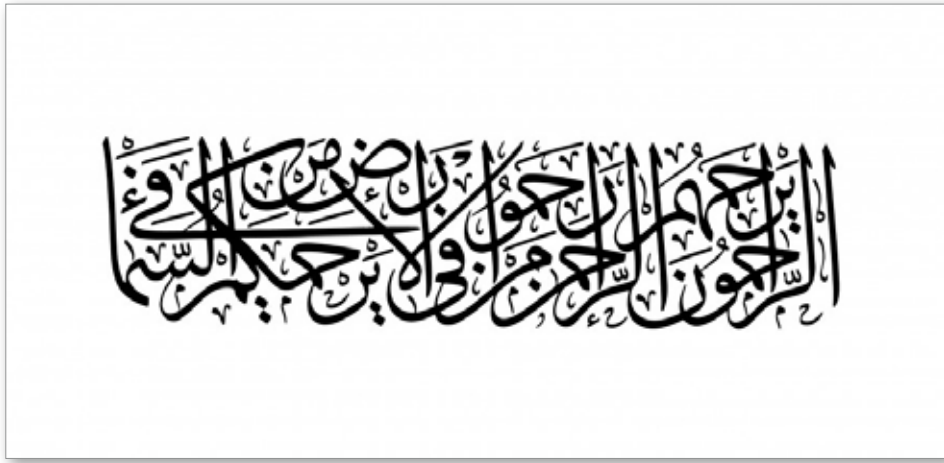 الرَّاحِمُونَ يَرْحَمُهُمُ الرَّحْمٰنُ ارْحَمُوا مَنْ فِي الْأَرْضِ يَرْحَمْكُمْ مَنْ فِي السَّمَاءِ